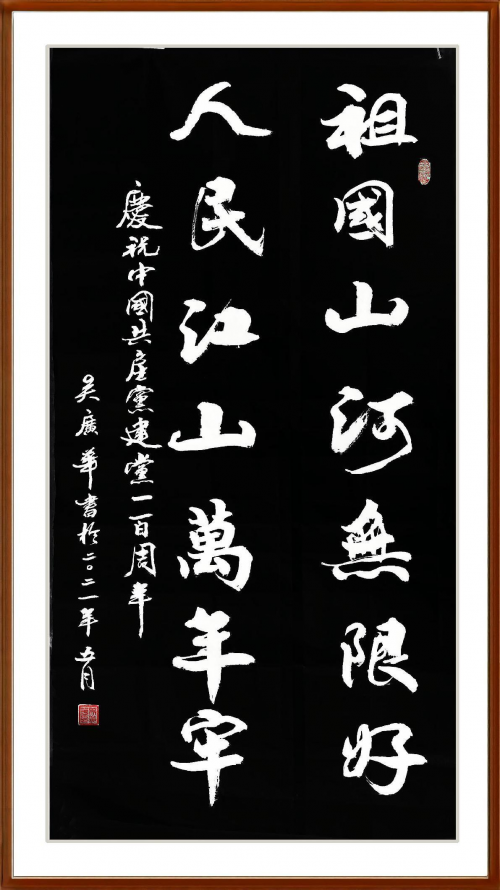 祖國山河無限好
人民江山萬年牢
慶祝中國共產黨建黨一百周年
吴廣華書於二〇二一年五月